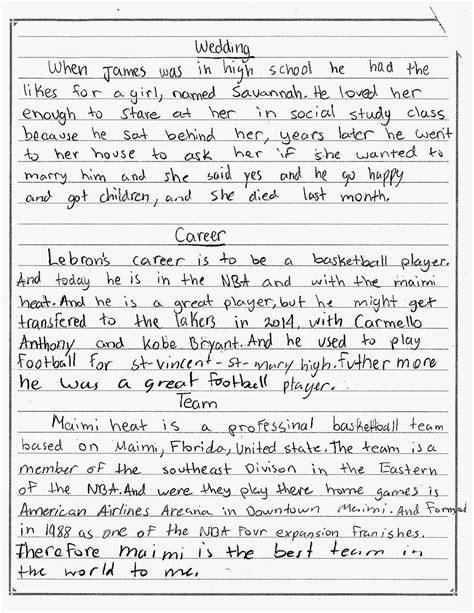 Wedding
When James was in high school he had the
likes for a girl, named Savannah. He loved her
enough to stare at her in social study class
because he sat behind her, years later he went
to her house to ask her if she wanted to
marry him and she said yes and he go happy
and got children, and she died last month.
Career
Lebron's career is to be a basketball player.
And today he is in the NBA and with the maimi
heat. And he is a great player, but he might get
transfered to the lakers in 2014, with Carmello
Anthony and Kobe Bryant. And he used to play
football for st-vincent-st-mary high. futher more
he was a great football player.
Team
Maimi heat is a professinal basketball team
based on Maimi, Florida, United state. The team is a
member of the southeast Divison in the Eastern
of the NBA. And were they play there home games is
American Airlines Areana in Downtown Maimi. And Formed
in 1988 as one of the NBA four expansion franishes.
Therefore maimi is the best team in
the world to me.